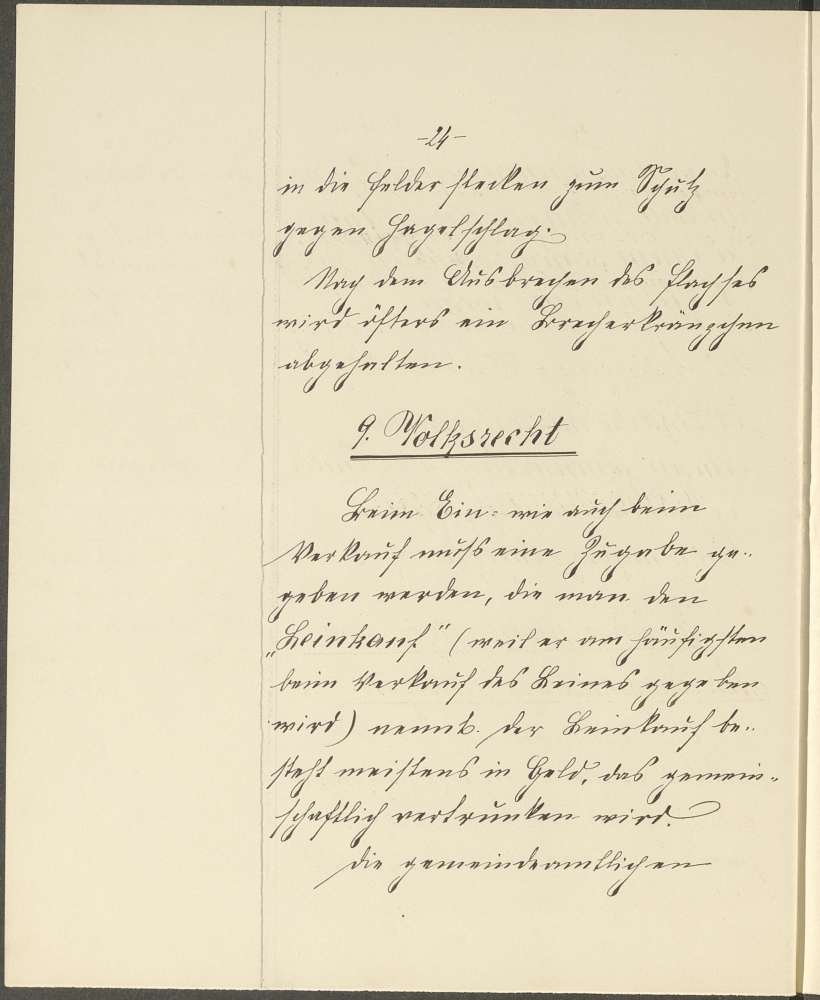 -24-
in die Felder stecken zum Schutz
gegen Hagelschlag.
Nach dem Ausbrechen des Flachses
wird öfters ein Brecherkränzchen
abgehalten.
9. Volksrecht
Beim Ein= wie auch beim
Verkauf muß eine Zugabe ge=
geben werden, die man den
„Leinkauf“ (weil er am häufigsten
beim Verkauf des Leines gegeben
wird) nennt. Der Leinkauf be=
steht meistens in Geld, das gemein=
schaftlich vertrunken wird.
Die gemeindeamtlichen